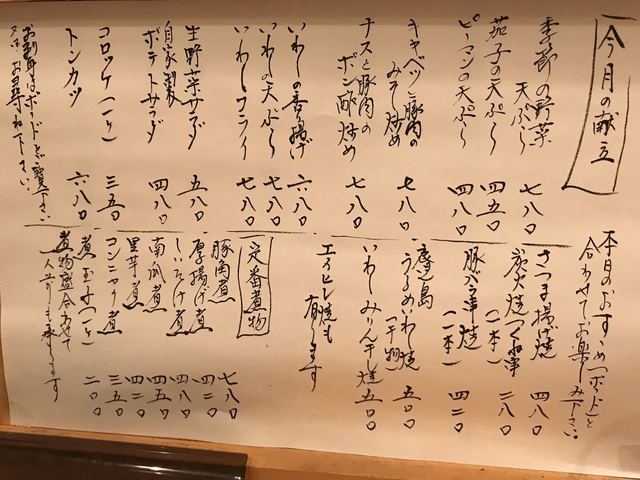 今月の献立
季節の野菜
天ぷら 七八〇
茄子の天ぷら 四五〇
ピーマンの天ぷら 四八〇
キャベツと豚肉の
みそ炒め 七八〇
ナスと豚肉の
ポン酢炒め 七八〇
いわしの香り揚げ 六八〇
いわしの天ぷら 七八〇
いわしフライ 七八〇
生野菜サラダ 五八〇
自家製
ポテトサラダ 四八〇
コロッケ(一ヶ) 三五〇
トンカツ 六八〇
お刺身はボードをご覧下さい
お尋ね下さい。
本日のおすすめ(ボード)と
合わせてお楽しみ下さい。
さつま揚げ焼 四八〇
炭火焼つくね串
(二本) 二八〇
豚バラ串焼
(二本) 四二〇
うるめいわし焼
(干物) 五〇〇
いわしみりん干し焼 五〇〇
エイヒレ焼も
有ります
定番煮物
豚角煮 七八〇
厚揚げ煮 四二〇
しいたけ煮 四八〇
南瓜煮 四五〇
里芋煮 四二〇
コンニャク煮 三五〇
煮玉子(一ヶ) 二〇〇
煮物盛合わせて
も承ります